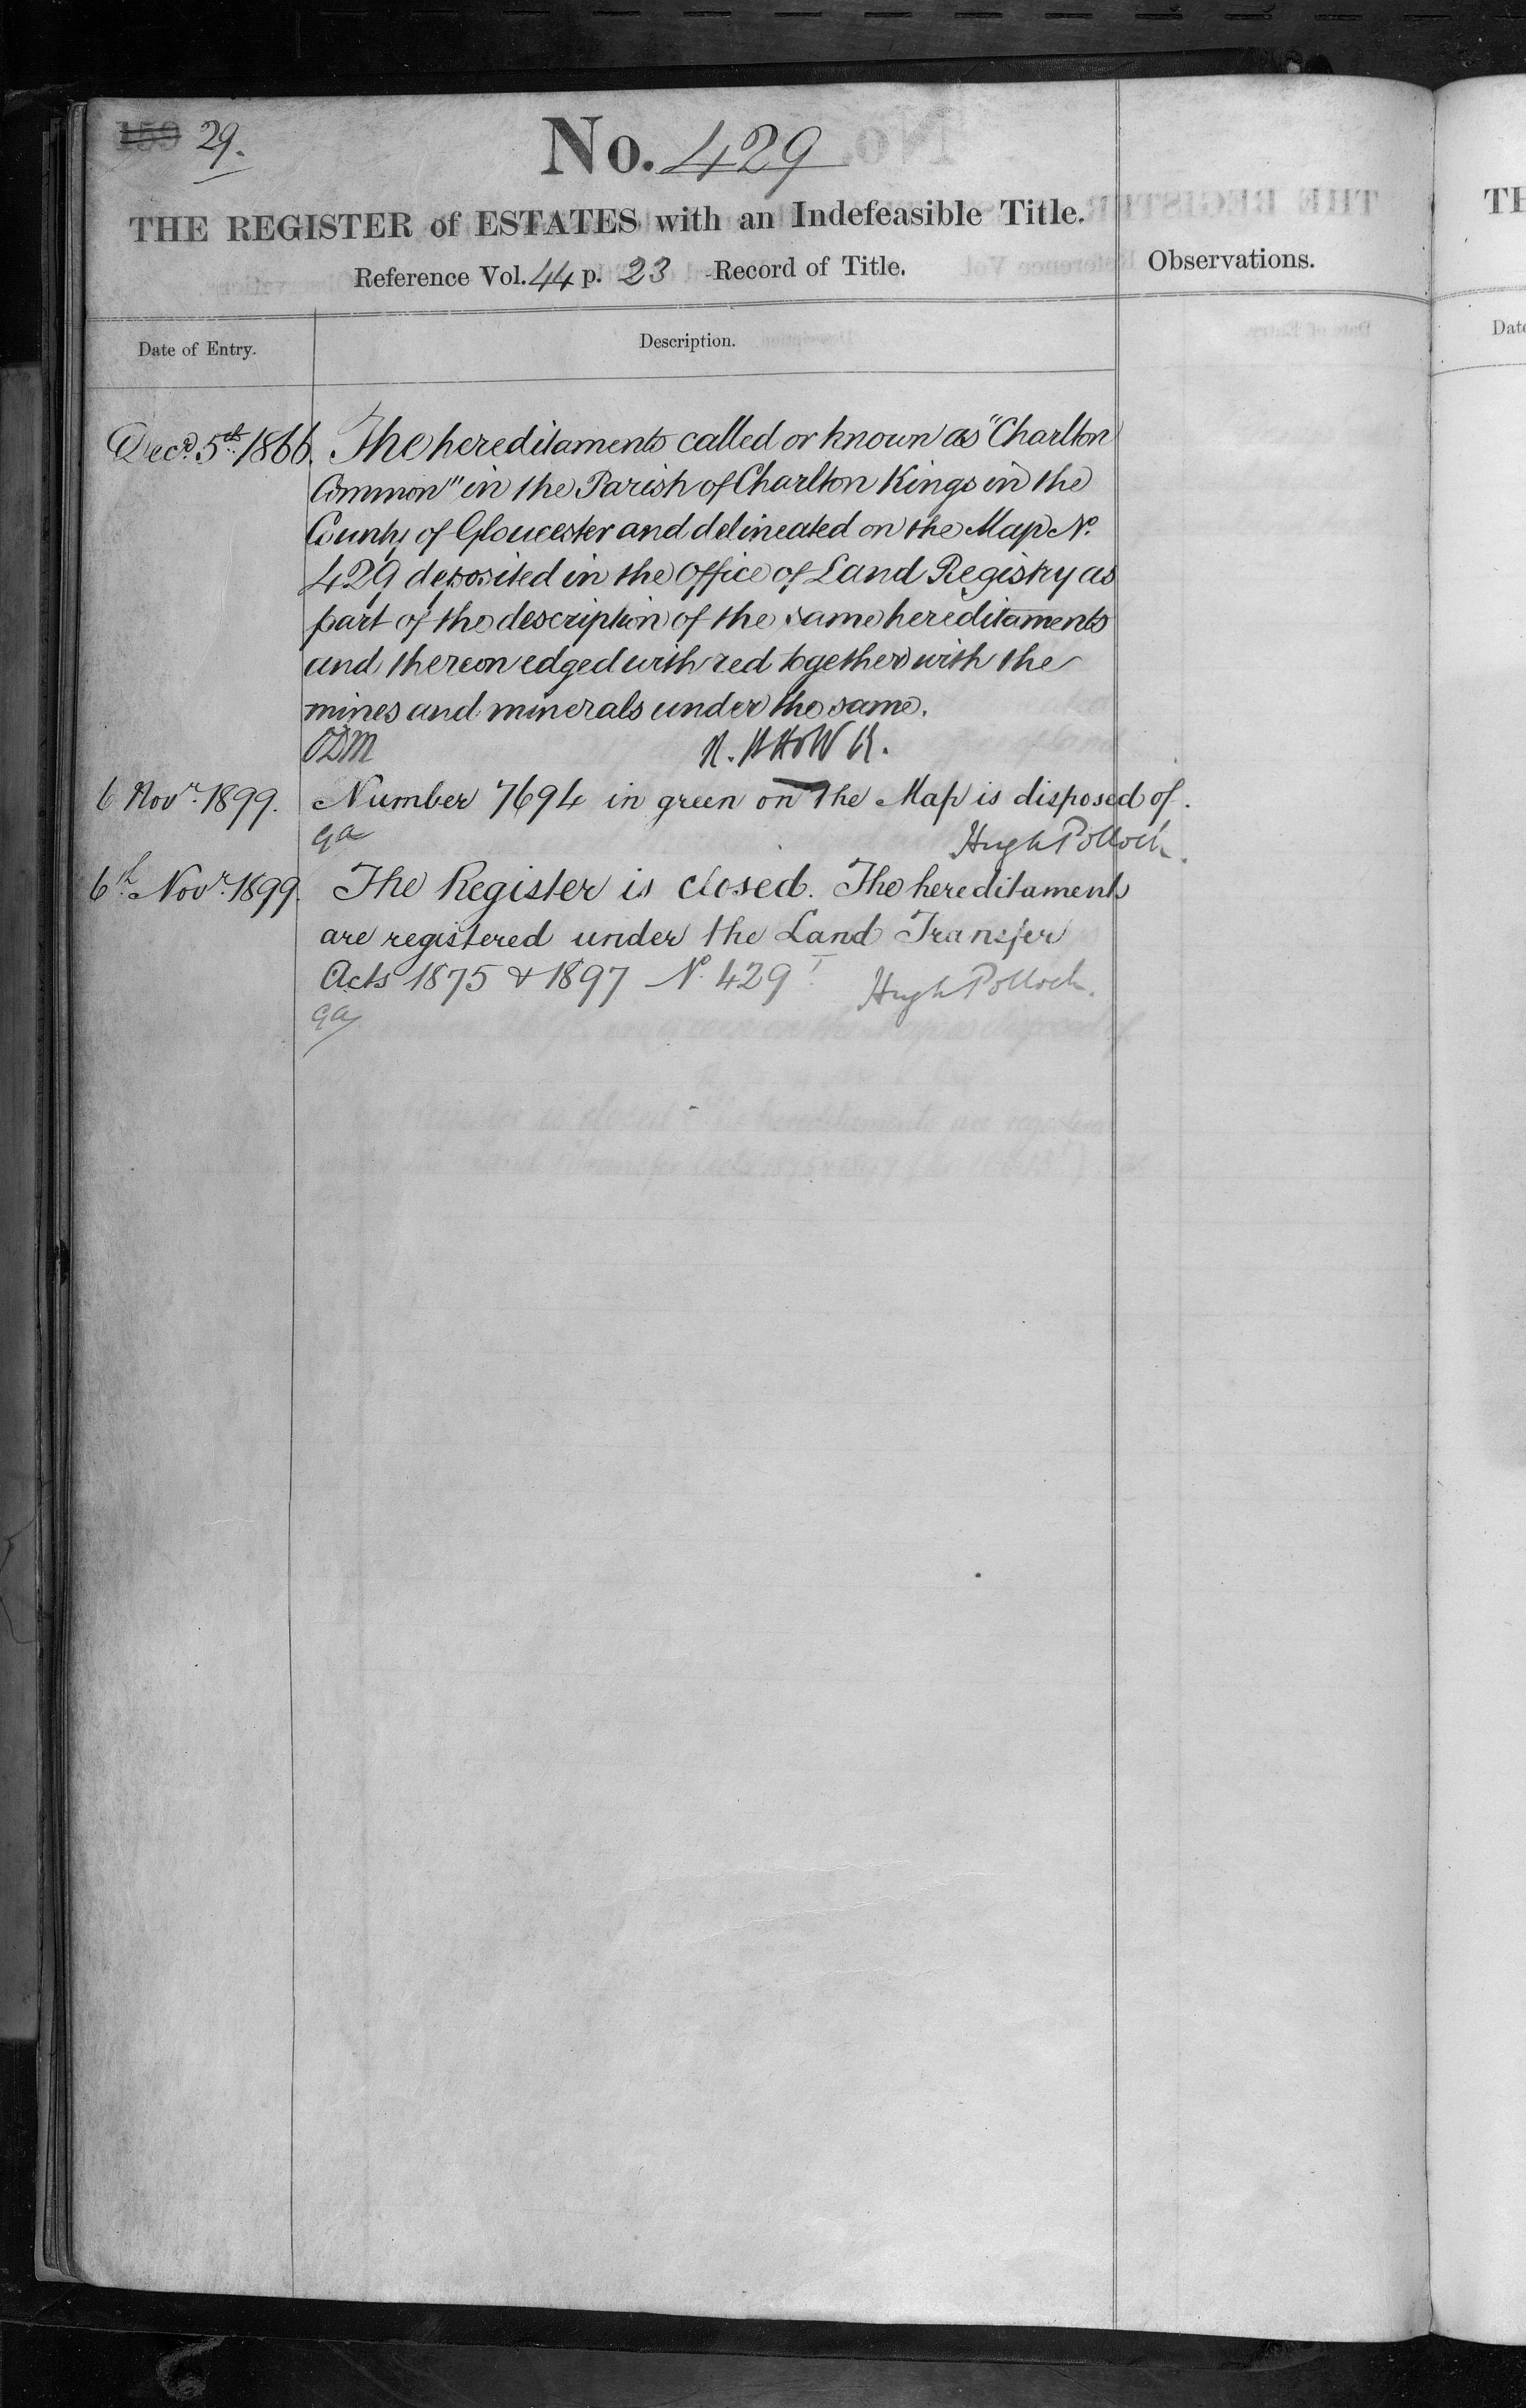 29.
No. 429
THE REGISTER of ESTATES with an Indefeasible Title.
Reference Vol. 44 p. 23 Record of Title.
Observations.
Date of Entry.
Description.
Decr. 5th 1866. The hereditaments called or known as "Charlton
Common" in the Parish of Charlton Kings in the
County of Gloucester and delineated on the Map No.
429 deposited in the Office of Land Registry as
part of the description of the same hereditaments
and thereon edged with red together with the
mines and minerals under the same.
ODM
6 Novr. 1899. Number 7694 in green on the Map is disposed of.
ga Hugh Pollock.
6th Novr. 1899. The Register is closed. The hereditaments
are registered under the Land Transfer
Acts 1875 & 1897 No. 429 I Hugh Pollock.
ga
TH
Date